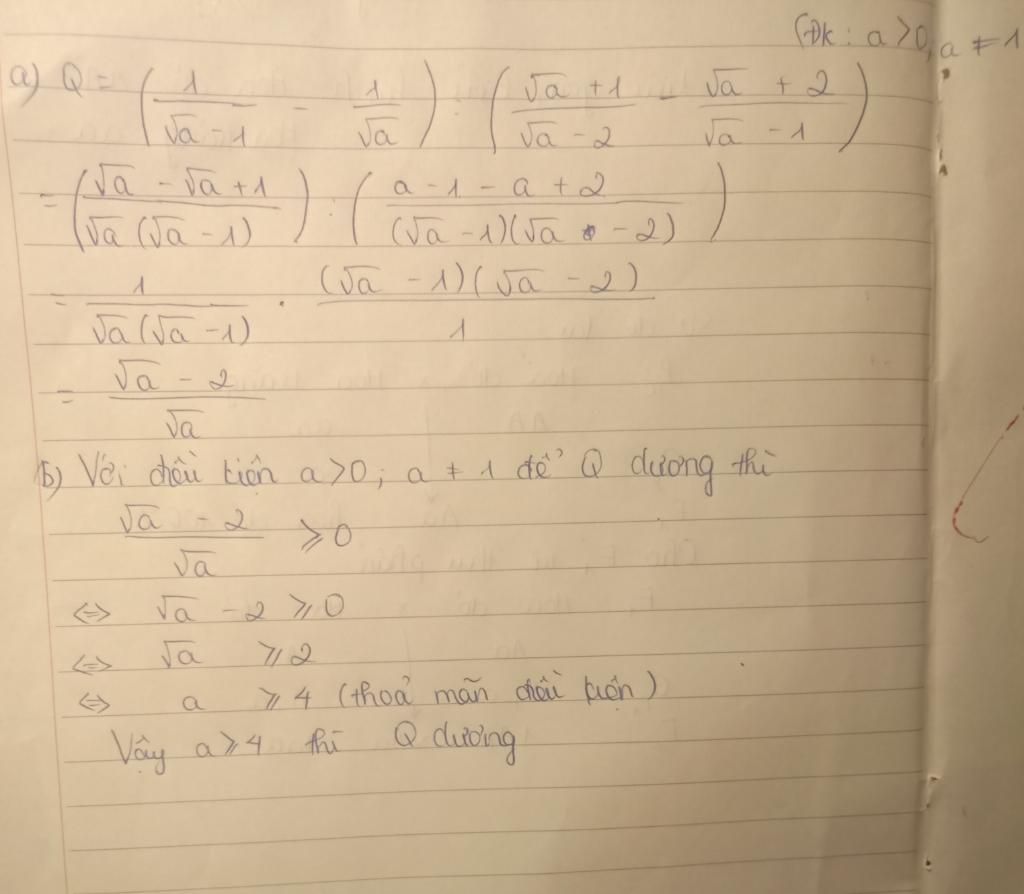 (Đk : a > 0, a ≠ 1
a) Q = (1/(√a - 1) - 1/√a) : ((√a + 1)/(√a - 2) - (√a + 2)/(√a - 1))
= ((√a - √a + 1)/(√a (√a - 1))) : ((a - 1 - a + 2)/((√a - 1)(√a - 2)))
= 1/(√a (√a - 1)) . ((√a - 1)(√a - 2))/1
= (√a - 2)/√a
b) Với điều kiện a > 0 ; a ≠ 1 để Q dương thì
(√a - 2)/√a ⩾ 0
⇔ √a - 2 ⩾ 0
⇔ √a ⩾ 2
⇔ a ⩾ 4 (thoả mãn điều kiện)
Vậy a ⩾ 4 thì Q dương